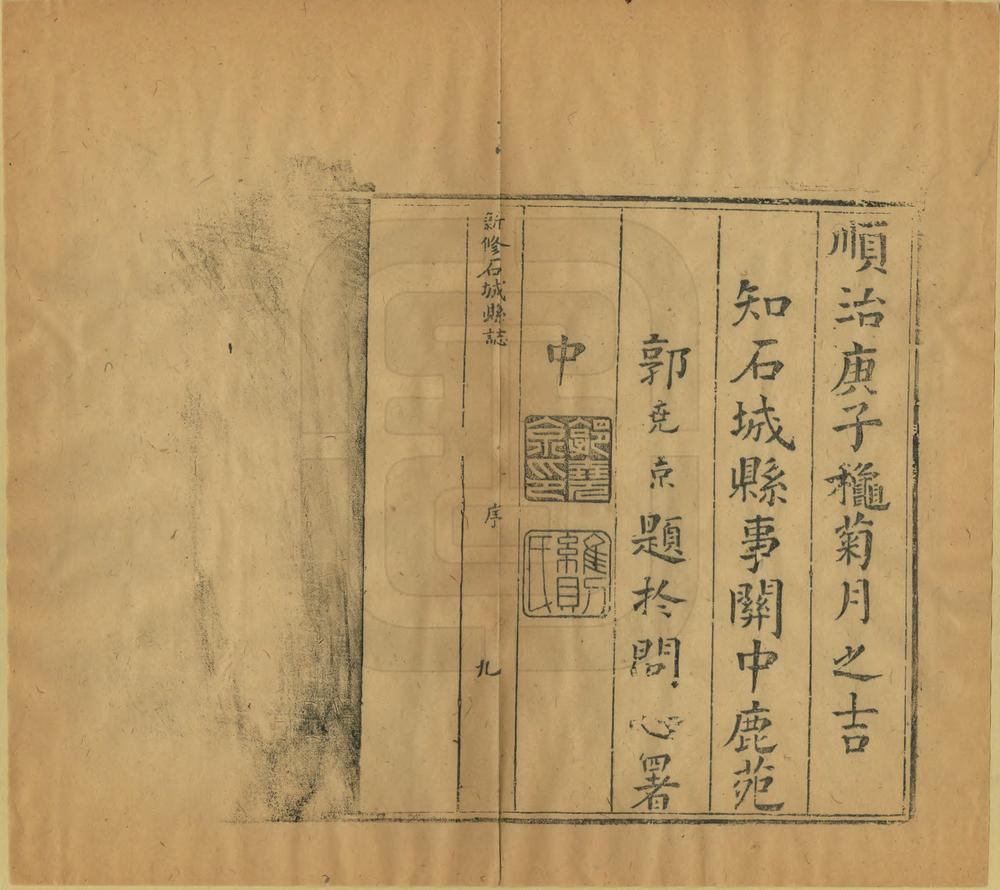 順治庚子龝菊月之吉
知石城縣事關中鹿苑
郭堯京題於問心署
中
郭堯京印
新修石城縣誌
序
九